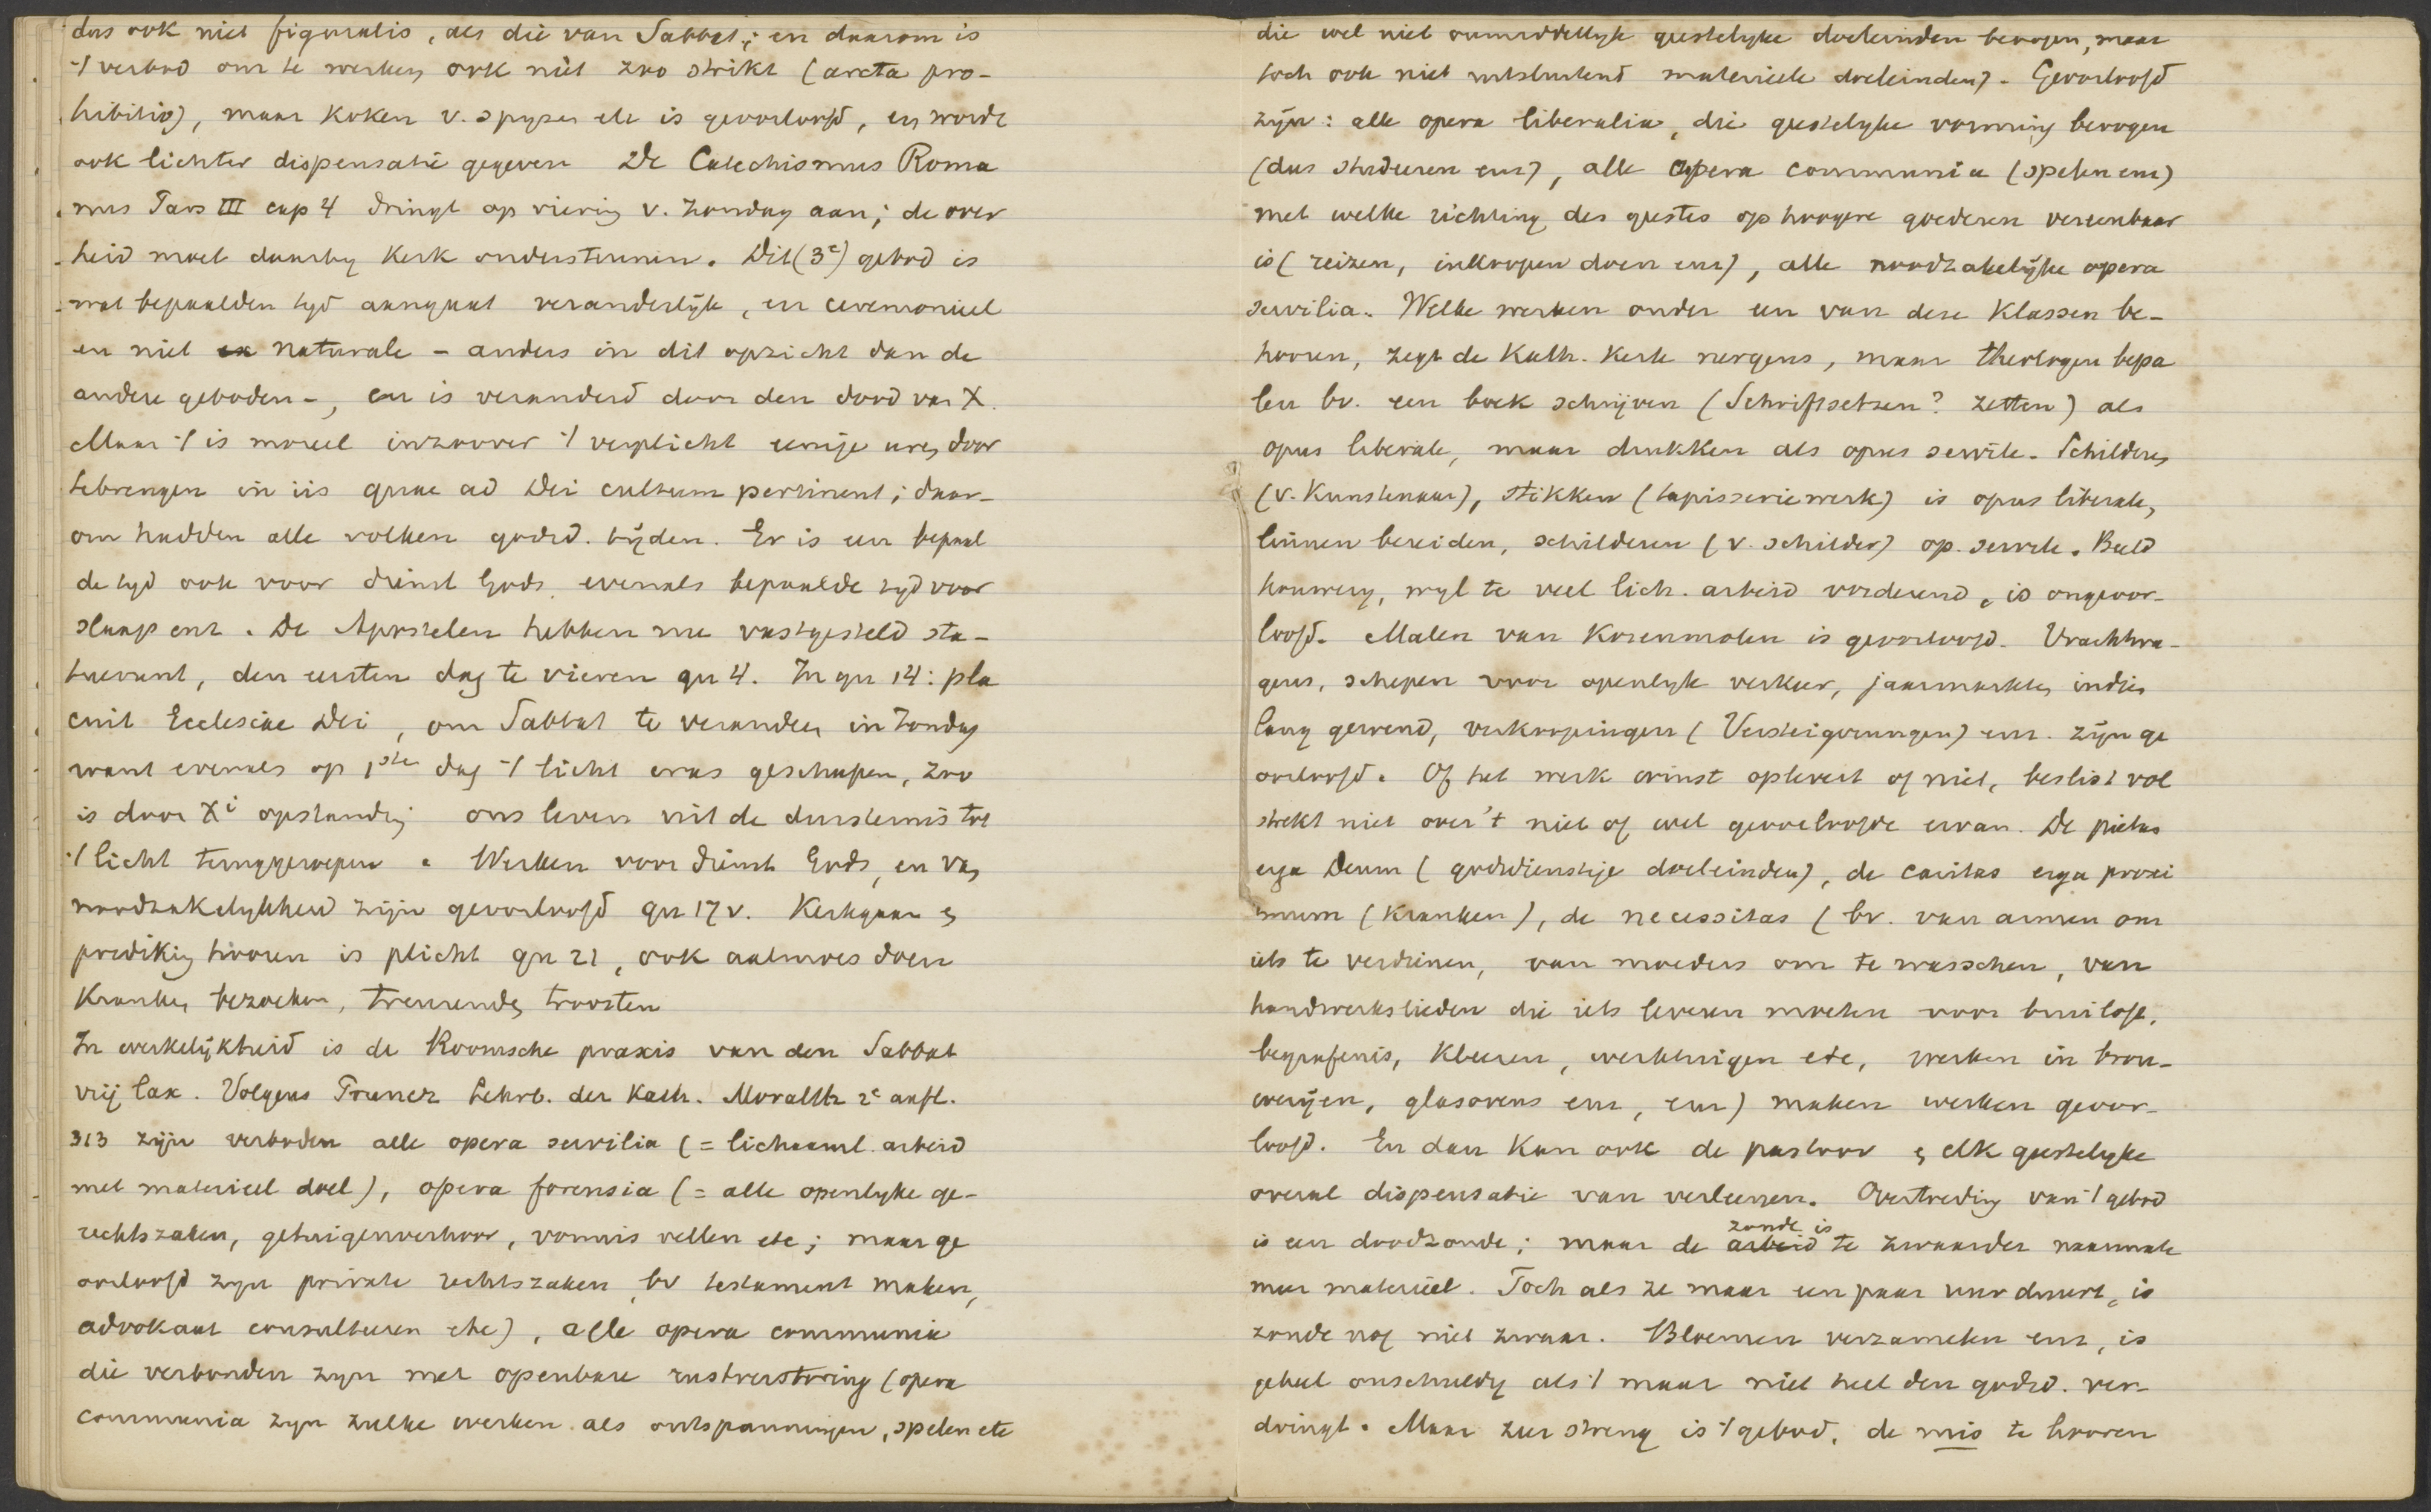 dus ook niet figuralis, als die van Sabbat; en daarom is
't verbod om te werken ook niet zoo strikt (arcta pro-
hibitio), maar koken v. spyzen etc is geoorloofd, en wordt
ook lichter dispensatie gegeven De Catechismus Roma
nus Pars III cap 4 dringt op viering v. Zondag aan; de over
heid moet daarby Kerk ondersteunen. Dit (3e) gebod is
wat bepaalden tyd aangaat veranderlijk, en ceremonieel
en niet naturale - anders in dit opzicht dan de
andere geboden -, en is veranderd door den dood van X.
Maar 't is moreel inzoover 't verplicht eenige uren door
tebrengen in iis quae ad Dei cultum pertinent; daar-
om hadden alle volken godsd. tijden. Er is een bepaal
de tyd ook voor dienst Gods, evenals bepaalde tyd voor
slaap enz. De Apostelen hebben nu vastgesteld sta-
tuerunt, den eersten dag te vieren qu 4. In qu 14: pla
cuit Ecclesiae Dei, om Sabbat te veranderen in Zondag
want evenals op 1ste dag 't licht was geschapen, zoo
is door Xi opstanding ons leven uit de duisternis tot
't licht teruggeroepen. Werken voor dienst Gods, en van
noodzakelykheid zijn geoorloofd qu 17 v. Kerkgaan en
prediking hooren is plicht qu 21, ook aalmoes doen
Kranken bezoeken, treurenden troosten
In werkelijkheid is de Roomsche praxis van den Sabbat
vrij lax. Volgens Pruner Lehrb. der Kath. Moralth 2e aufl.
313 zijn verboden alle opera servilia (= lichaaml. arbeid
met materieel doel), opera forensia (= alle openlyke ge-
rechtszaken, getuigenverhoor, vonnis vellen etc; maar ge
oorloofd zyn private rechtszaken, bv testament maken,
advokaat consulteeren etc), alle opera communia
die verbonden zyn met openbare rustverstoring (opera
communia zyn zulke werken als ontspanningen, spelen etc
die wel niet onmiddellyk geestelyke doeleinden beoogen, maar
toch ook niet uitsluitend materieele doeleinden). Geoorloofd
zijn: alle opera liberalia, die geestelyke vorming beoogen
(dus studeeren enz), alle opera communia (spelen enz)
met welke richting des geestes op hoogere goederen vereenbaar
is (reizen, inkoopen doen enz), alle noodzakelijke opera
servilia. Welke werken onder een van deze Klassen be-
hooren, zegt de Kath. Kerk nergens, maar theologen bepa
len bv. een boek schrijven (Schriftsetzen? zetten) als
opus liberale, maar drukken als opus servile. Schilderen
(v. Kunstenaar), stikken (tapisseriewerk) is opus liberale,
linnen bereiden, schilderen (v. schilder) op. servile. Beeld
houwery, wyl te veel lich. arbeid vorderend, is ongeoor-
loofd. Malen van Korenmolen is geoorloofd. Vrachtwa-
gens, schepen voor openlyk verkeer, jaarmarkten indien
lang gewend, verkoopingen (Versteigerungen) enz. zijn ge
oorloofd. Of het werk winst oplevert of niet, beslist vol
strekt niet over 't niet of wel geoorloofde ervan. De pietas
erga Deum (godsdienstige doeleinden), de caritas erga proxi
mum (kranken), de necessitas (bv. van armen om
iets te verdienen, van moeders om te wasschen, van
handwerkslieden die iets leveren moeten voor bruiloft,
begrafenis, kleeren, werktuigen etc, werken in brou-
werijen, glasovens enz, enz) maken werken geoor-
loofd. En dan kan ook de pastoor en elk geestelyke
overal dispensatie van verleenen. Overtreding van 't gebod
is een doodzonde; maar de zonde is te zwaarder naarmate
meer materieel. Toch als ze maar een paar uur duurt, is
zonde nog niet zwaar. Bloemen verzamelen enz, is
geheel onschuldig als 't maar niet heel den godsd. ver-
dringt. Maar zeer streng is 't gebod, de mis te hooren